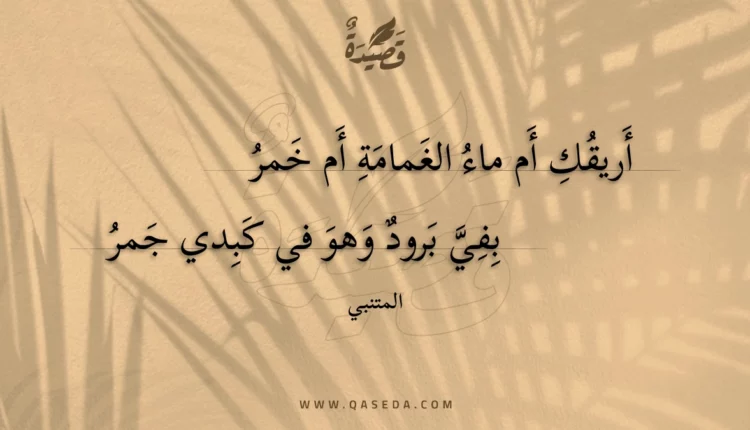 قَصِيْدَةٌ
أَريقُكِ أَم ماءُ الغَمامَةِ أَم خَمرُ
بِفِيَّ بَرودٌ وَهوَ في كَبِدي جَمرُ
المتنبي
WWW.QASEDA.COM